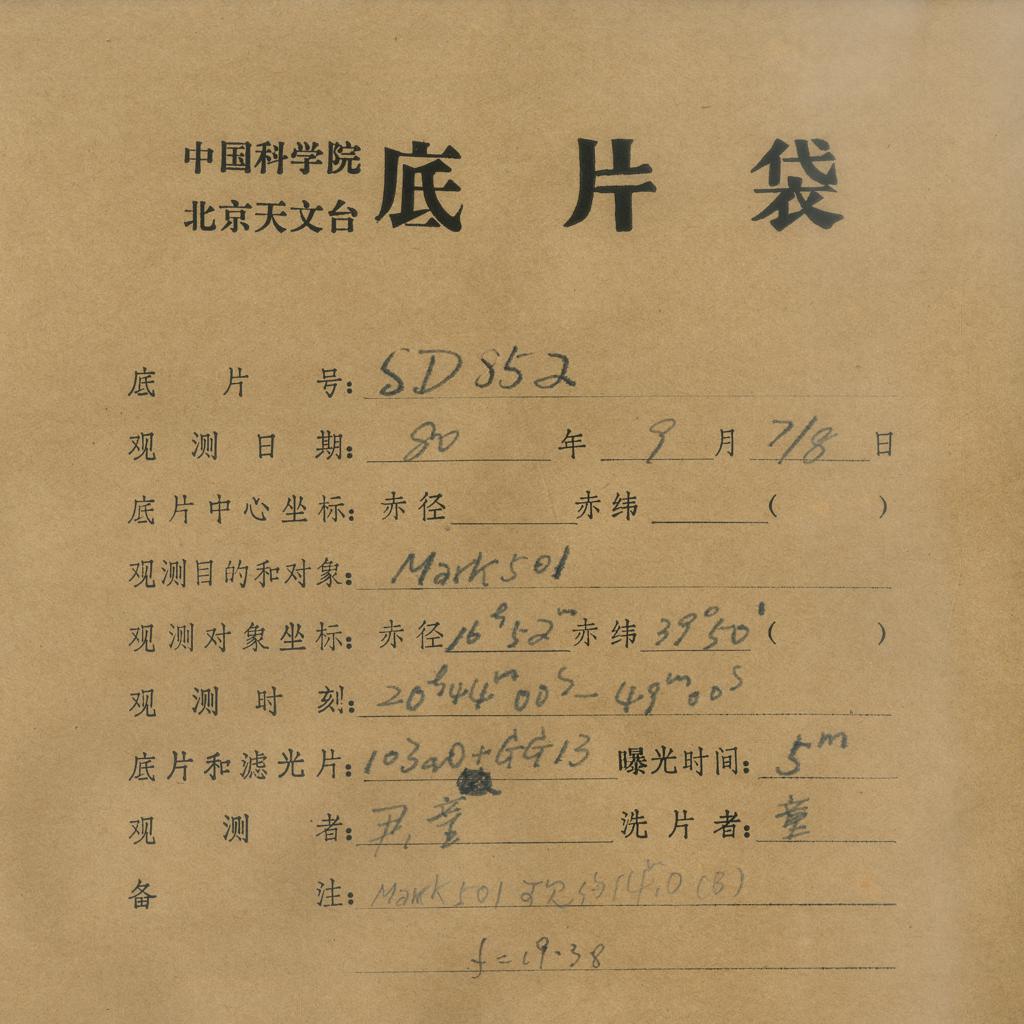 中国科学院
北京天文台 底片袋
底片号： SD 852
观测日期： 80 年 9 月 7/8 日
底片中心坐标： 赤径 赤纬 ( )
观测目的和对象： Mark 501
观测对象坐标： 赤径 16h52m 赤纬 39°50' ( )
观测时刻： 20h44m00s — 49m00s
底片和滤光片： 103aO+GG13 曝光时间： 5m
观测者： 尹、童 洗片者： 童
备注： Mark 501 14.0 (B)
f=19.38